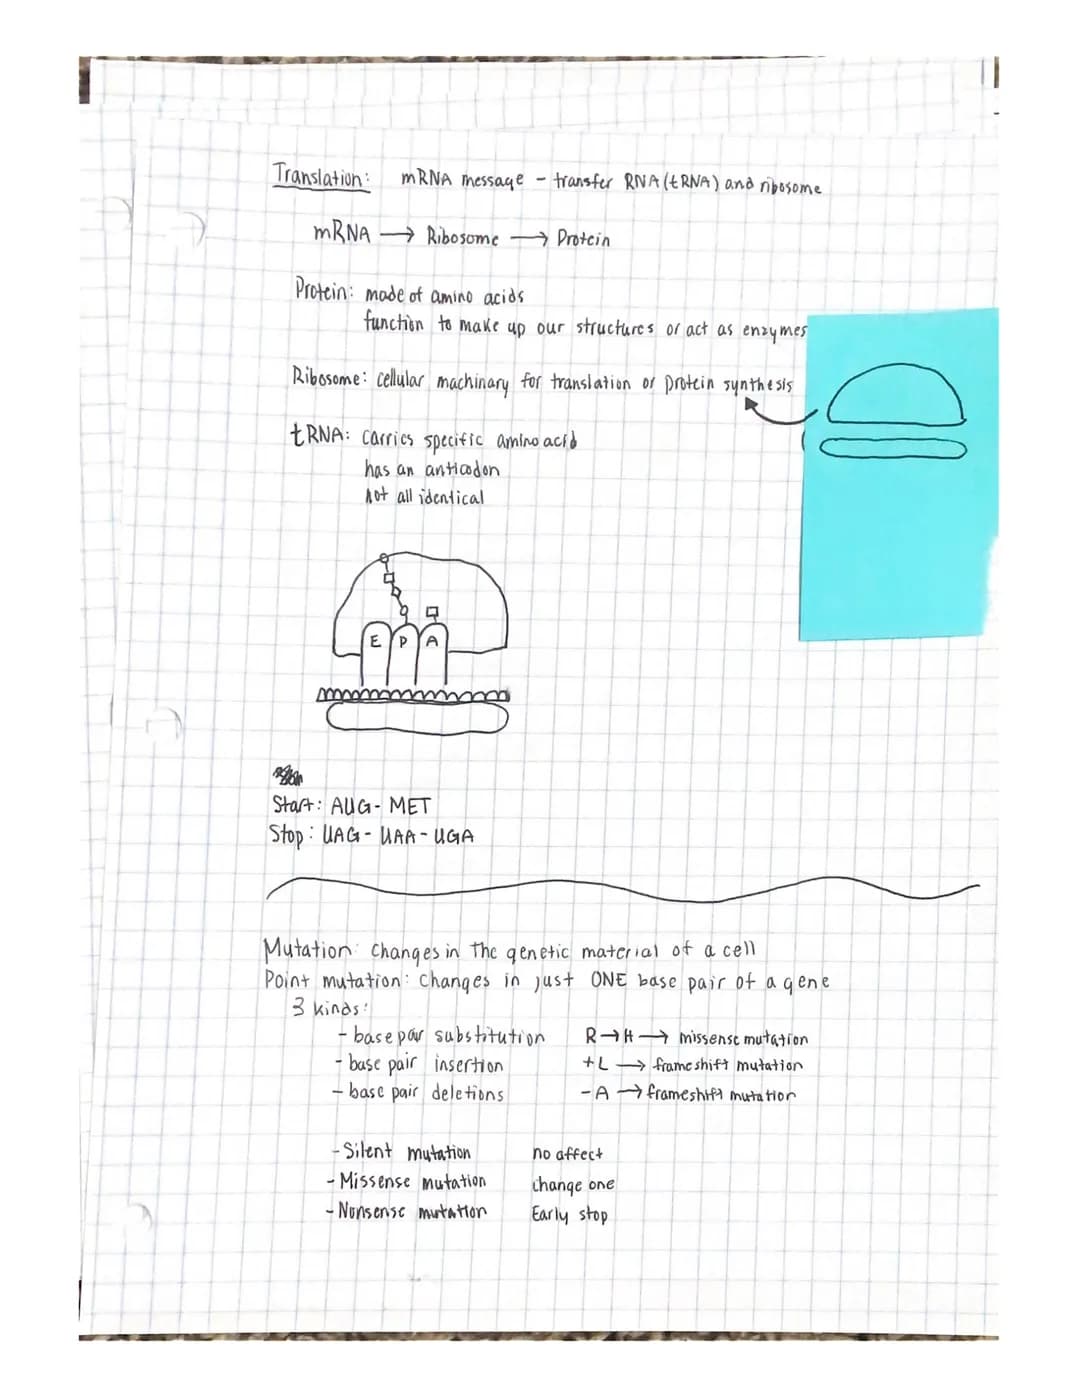 Translation: mRNA message - transfer RNA (tRNA) and ribosome
mRNA → Ribosome → Protein
Protein: made of amino acids
function to make up our structures or act as enzymes
Ribosome: cellular machinary for translation or protein synthesis
tRNA: carries specific amino acid
has an anticodon
not all identical
E P A
Start: AUG - MET
Stop: UAG - UAA - UGA
Mutation: Changes in The genetic material of a cell
Point mutation: Changes in just ONE base pair of a gene
3 kinds:
- base pair substitution R→H → missense mutation
- base pair insertion +L → frameshift mutation
- base pair deletions -A → frameshift mutation
- Silent mutation no affect
- Missense mutation change one
- Nonsense mutation Early stop